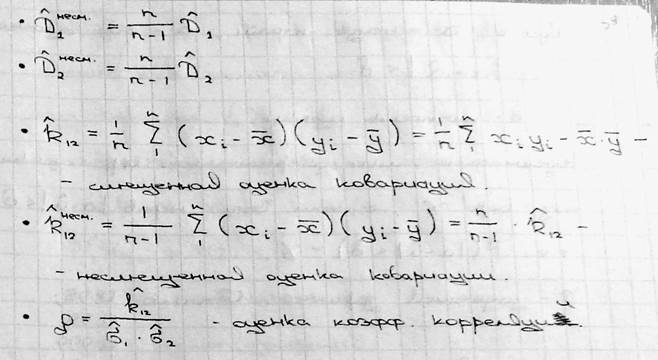 • D̂₁ⁿᵉᶜᵐ· = n/(n-1) D̂₁
• D̂₂ⁿᵉᶜᵐ· = n/(n-1) D̂₂
• k̂₁₂ = 1/n Σ₁ⁿ (xᵢ - x̄)(yᵢ - ȳ) = 1/n Σ₁ⁿ xᵢyᵢ - x̄·ȳ -
- смещенная оценка ковариаций.
• k̂₁₂ⁿᵉᶜᵐ· = 1/(n-1) Σ₁ⁿ (xᵢ - x̄)(yᵢ - ȳ) = n/(n-1) · k̂₁₂ -
- несмещенной оценка ковариации.
• ρ = k̂₁₂/(σ̂₁ · σ̂₂) - оценка коэфф. корреляции.